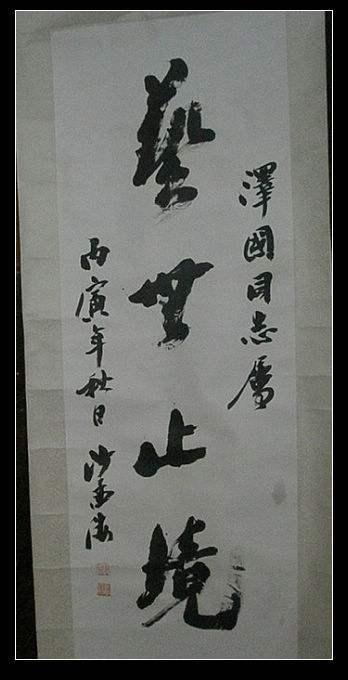 澤國同志屬
藝無止境
丙寅年秋日 沙孟海